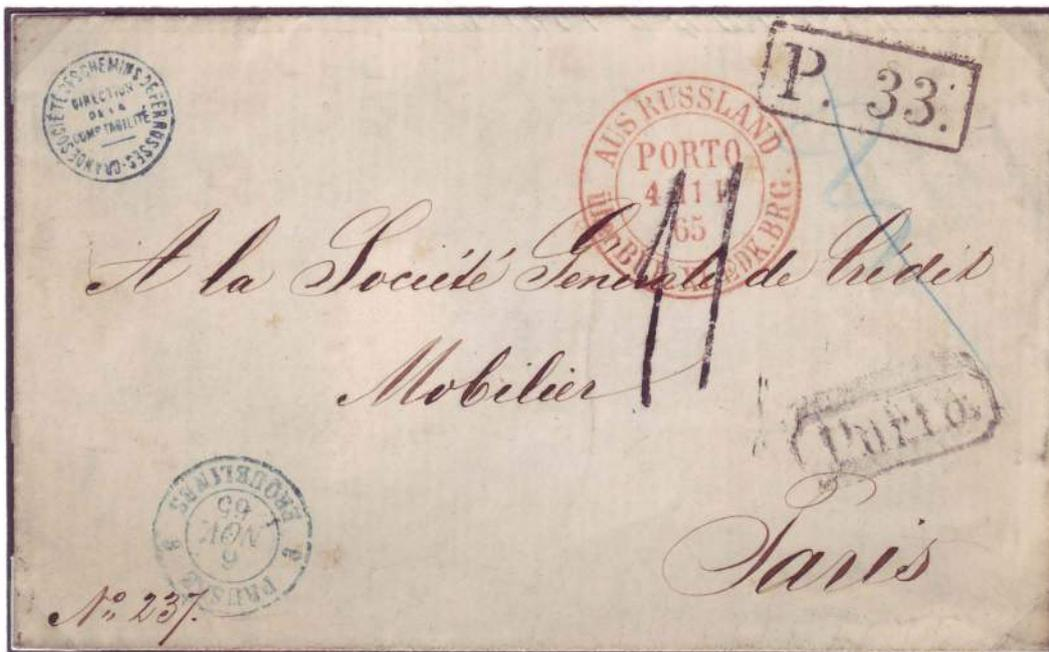 GRANDE SOCIÉTÉ DES CHEMINS DE FER RUSSES
DIRECTION
DE LA
COMPTABILITÉ
P. 33.
AUS RUSSLAND
PORTO
4 11
65
BRG.
11
A la Société Generale de Crédit
Mobilier
Porto.
Paris
PRUSSE 3 ERQUELINES 3
6
NOV.
65
No 237.